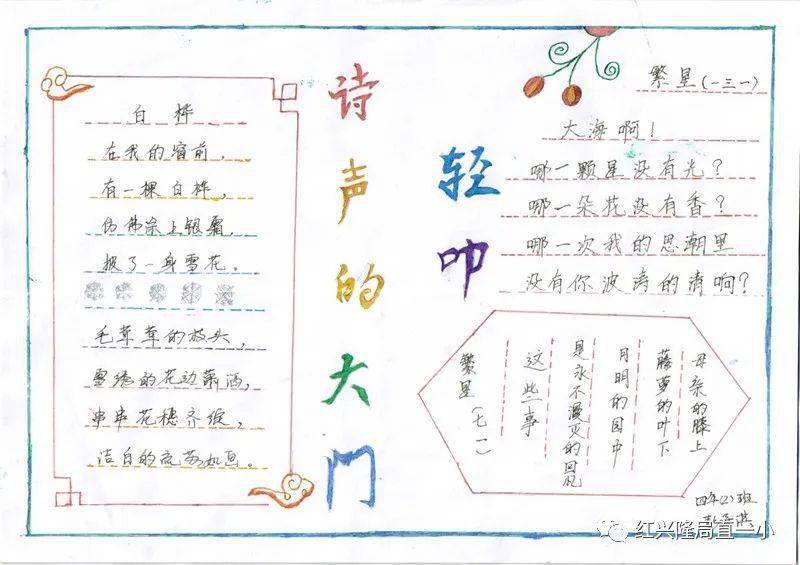 轻叩
诗声的大门
白桦
在我的窗前，
有一棵白桦，
仿佛涂上银霜，
披了一身雪花。
毛茸茸的枝头，
雪绣的花边潇洒，
串串花穗齐绽，
洁白的流苏如画。
繁星(一三一)
大海啊！
哪一颗星没有光？
哪一朵花没有香？
哪一次我的思潮里
没有你波涛的清响？
繁星(七一)
这些事
是永不漫灭的回忆
月明的园中
藤萝的叶下
母亲的膝上
四年(2)班
红兴隆局直一小